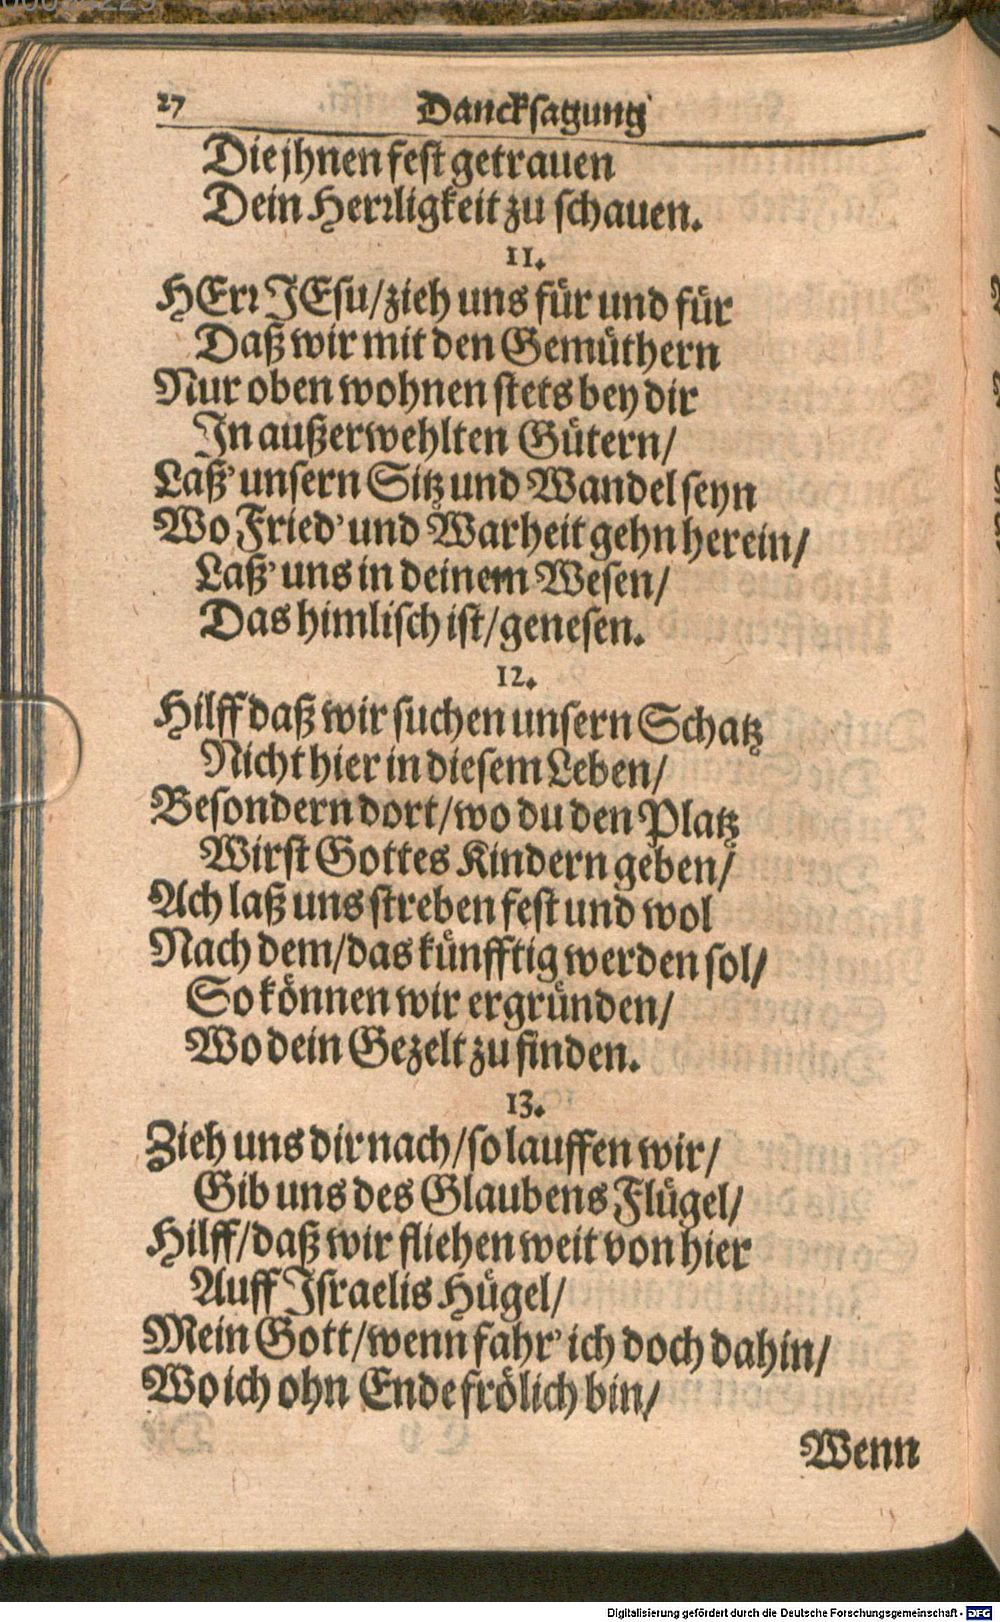 27 Dancksagung
Die jhnen fest getrauen
Dein Herrligkeit zu schauen.
11.
HErr JEsu/zieh uns für und für
Daß wir mit den Gemüthern
Nur oben wohnen stets bey dir
In außerwehlten Gütern/
Laß' unsern Sitz und Wandel seyn
Wo Fried' und Warheit gehn herein/
Laß' uns in deinem Wesen/
Das himlisch ist/genesen.
12.
Hilff daß wir suchen unsern Schatz
Nicht hier in diesem Leben/
Besondern dort/wo du den Platz
Wirst Gottes Kindern geben/
Ach laß uns streben fest und wol
Nach dem/das künfftig werden sol/
So können wir ergründen/
Wo dein Gezelt zu finden.
13.
Zieh uns dir nach/so lauffen wir/
Gib uns des Glaubens Flügel/
Hilff/daß wir fliehen weit von hier
Auff Israelis Hügel/
Mein Gott/wenn fahr' ich doch dahin/
Wo ich ohn Ende frölich bin/
Wenn
Digitalisierung gefördert durch die Deutsche Forschungsgemeinschaft - DFG